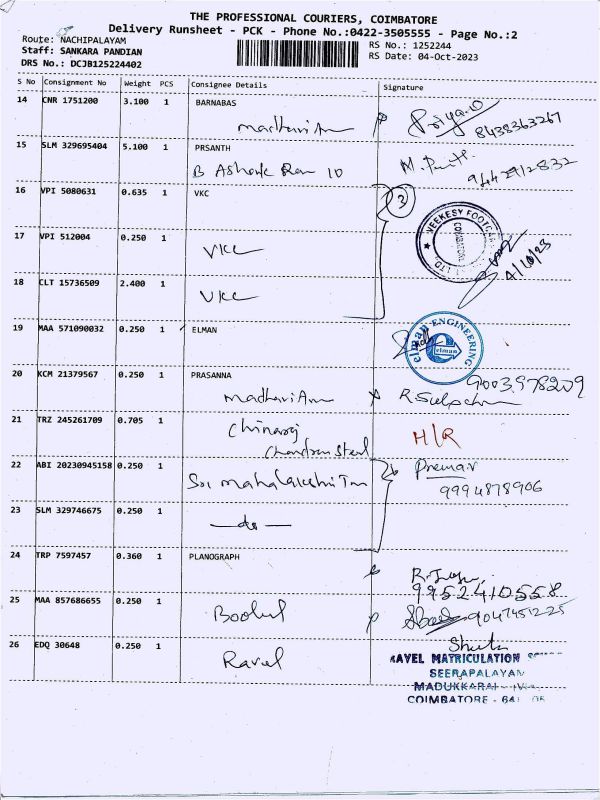 THE PROFESSIONAL COURIERS, COIMBATORE
Delivery Runsheet - PCK - Phone No.:0422-3505555 - Page No.:2
Route: NACHIPALAYAM
Staff: SANKARA PANDIAN
DRS No.: DCJB125224402
RS No.: 1252244
RS Date: 04-Oct-2023
S No Consignment No Weight PCS Consignee Details Signature
14 CNR 1751200 3.100 1 BARNABAS
8438363267
15 SLM 329695404 5.100 1 PRSANTH
16 VPI 5080631 0.635 1 VKC
3
VEEKESY FOOTCARE
17 VPI 512004 0.250 1 VKC
4/10/23
18 CLT 15736509 2.400 1 VKC
19 MAA 571090032 0.250 1 ELMAN
elman ENGINEERING
elman
20 KCM 21379567 0.250 1 PRASANNA
9003978209
21 TRZ 245261709 0.705 1 Chinaraj
Chandran Steel
H/R
22 ABI 20230945158 0.250 1 Sri mahalakshmi
9994878906
23 SLM 329746675 0.250 1 — do —
24 TRP 7597457 0.360 1 PLANOGRAPH
9952410558
25 MAA 857686655 0.250 1
9047451225
26 EDQ 30648 0.250 1 Ravel
RAVEL MATRICULATION
SEERAPALAYAM
MADUKKARAI
COIMBATORE - 641